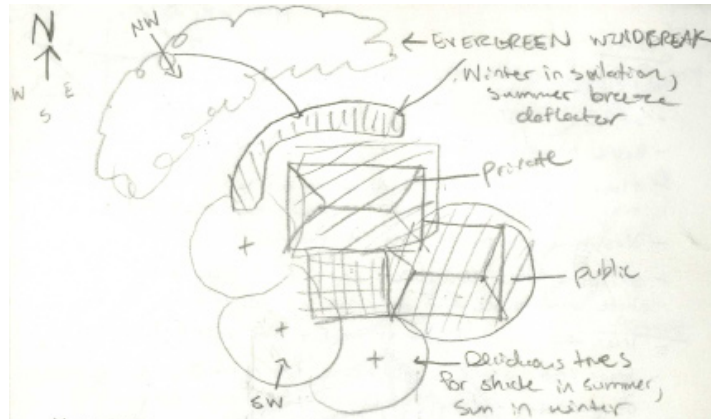 N
W E
S
NW
EVERGREEN WINDBREAK
Winter insulation,
summer breeze
deflector
private
public
SW
Deciduous trees
for shade in summer,
sun in winter